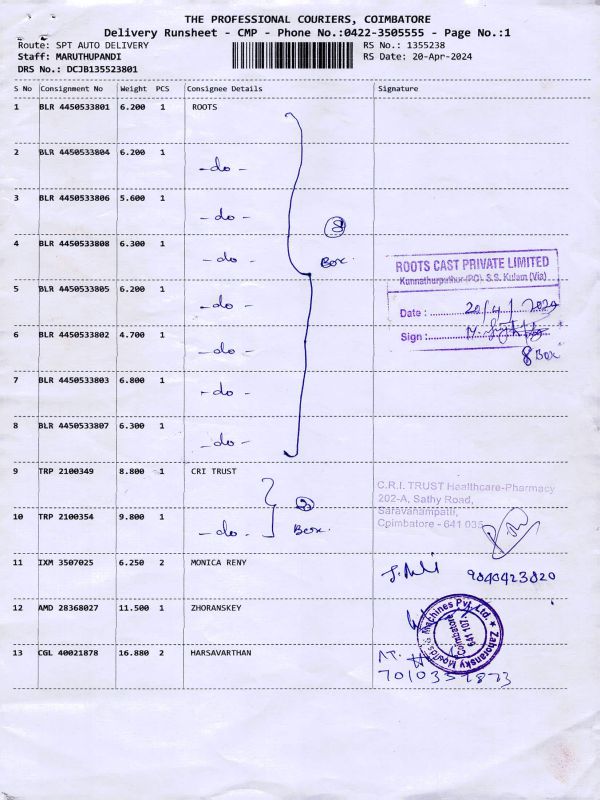 THE PROFESSIONAL COURIERS, COIMBATORE
Delivery Runsheet - CMP - Phone No.:0422-3505555 - Page No.:1
Route: SPT AUTO DELIVERY RS No.: 1355238
Staff: MARUTHUPANDI RS Date: 20-Apr-2024
DRS No.: DCJB135523801
S No Consignment No Weight PCS Consignee Details Signature
1 BLR 4450533801 6.200 1 ROOTS
2 BLR 4450533804 6.200 1 -do-
3 BLR 4450533806 5.600 1 -do-
8
4 BLR 4450533808 6.300 1 -do- Box.
ROOTS CAST PRIVATE LIMITED
Kunnathurpudhur (PO), S.S. Kulam (Via)
5 BLR 4450533805 6.200 1 -do-
Date : 20/4/2024
6 BLR 4450533802 4.700 1 -do-
Sign :
8 Box
7 BLR 4450533803 6.800 1 -do-
8 BLR 4450533807 6.300 1 -do-
9 TRP 2100349 8.800 1 CRI TRUST
C.R.I. TRUST Healthcare-Pharmacy
202-A, Sathy Road,
Saravanampatti,
Coimbatore - 641 035
2
10 TRP 2100354 9.800 1 -do- Box.
11 IXM 3507025 6.250 2 MONICA RENY
9840423820
12 AMD 28368027 11.500 1 ZHORANSKEY
Zahoransky Moulds & Machines Pvt. Ltd.
Coimbatore
641 107
13 CGL 40021878 16.880 2 HARSAVARTHAN